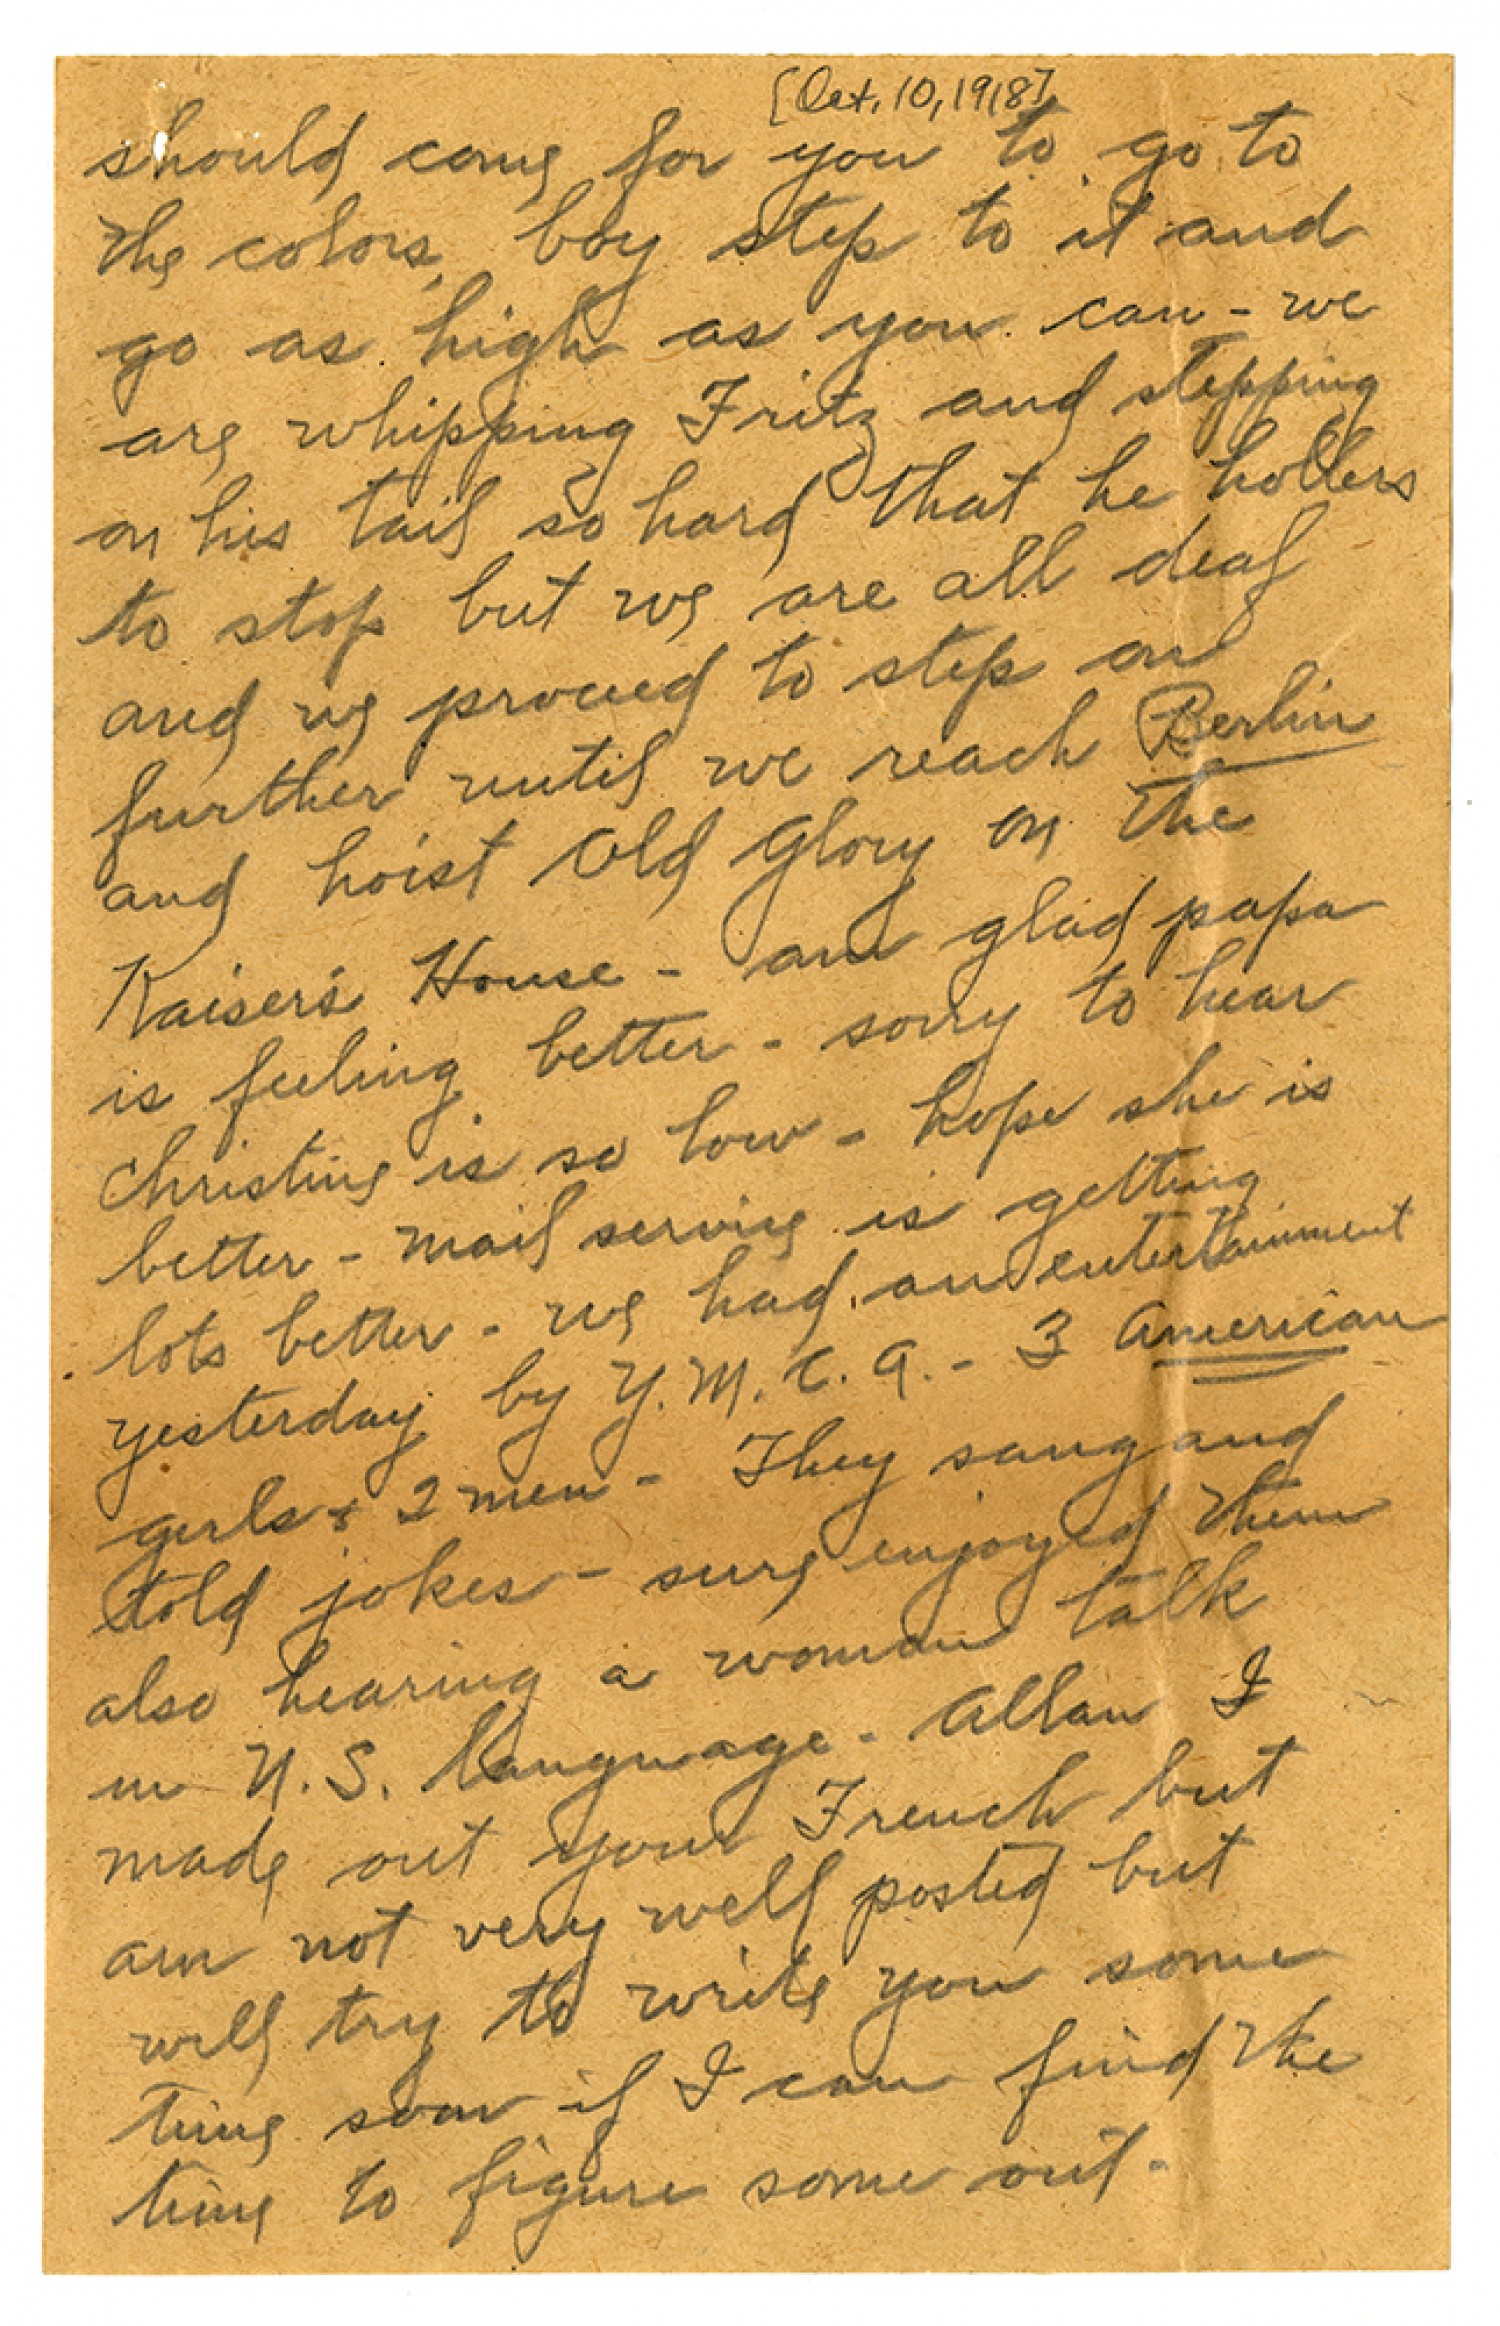 [Oct. 10, 1918]
should come for you to go to
the colors, boy step to it and
go as high as you can - we
are whipping Fritz and stepping
on his tail so hard that he hollers
to stop but we are all deaf
and we proceed to step on
further until we reach Berlin
and hoist Old Glory on the
Kaiser's House - am glad papa
is feeling better - sorry to hear
Christine is so low - hope she is
better - mail service is getting
lots better - we had an entertainment
yesterday by Y.M.C.A. - 3 American
girls + 2 men - They sang and
told jokes - sure enjoyed them
also hearing a woman talk
in U.S. language - Allan I
made out your French but
am not very well posted but
will try to write you some
time soon if I can find the
time to figure some out.